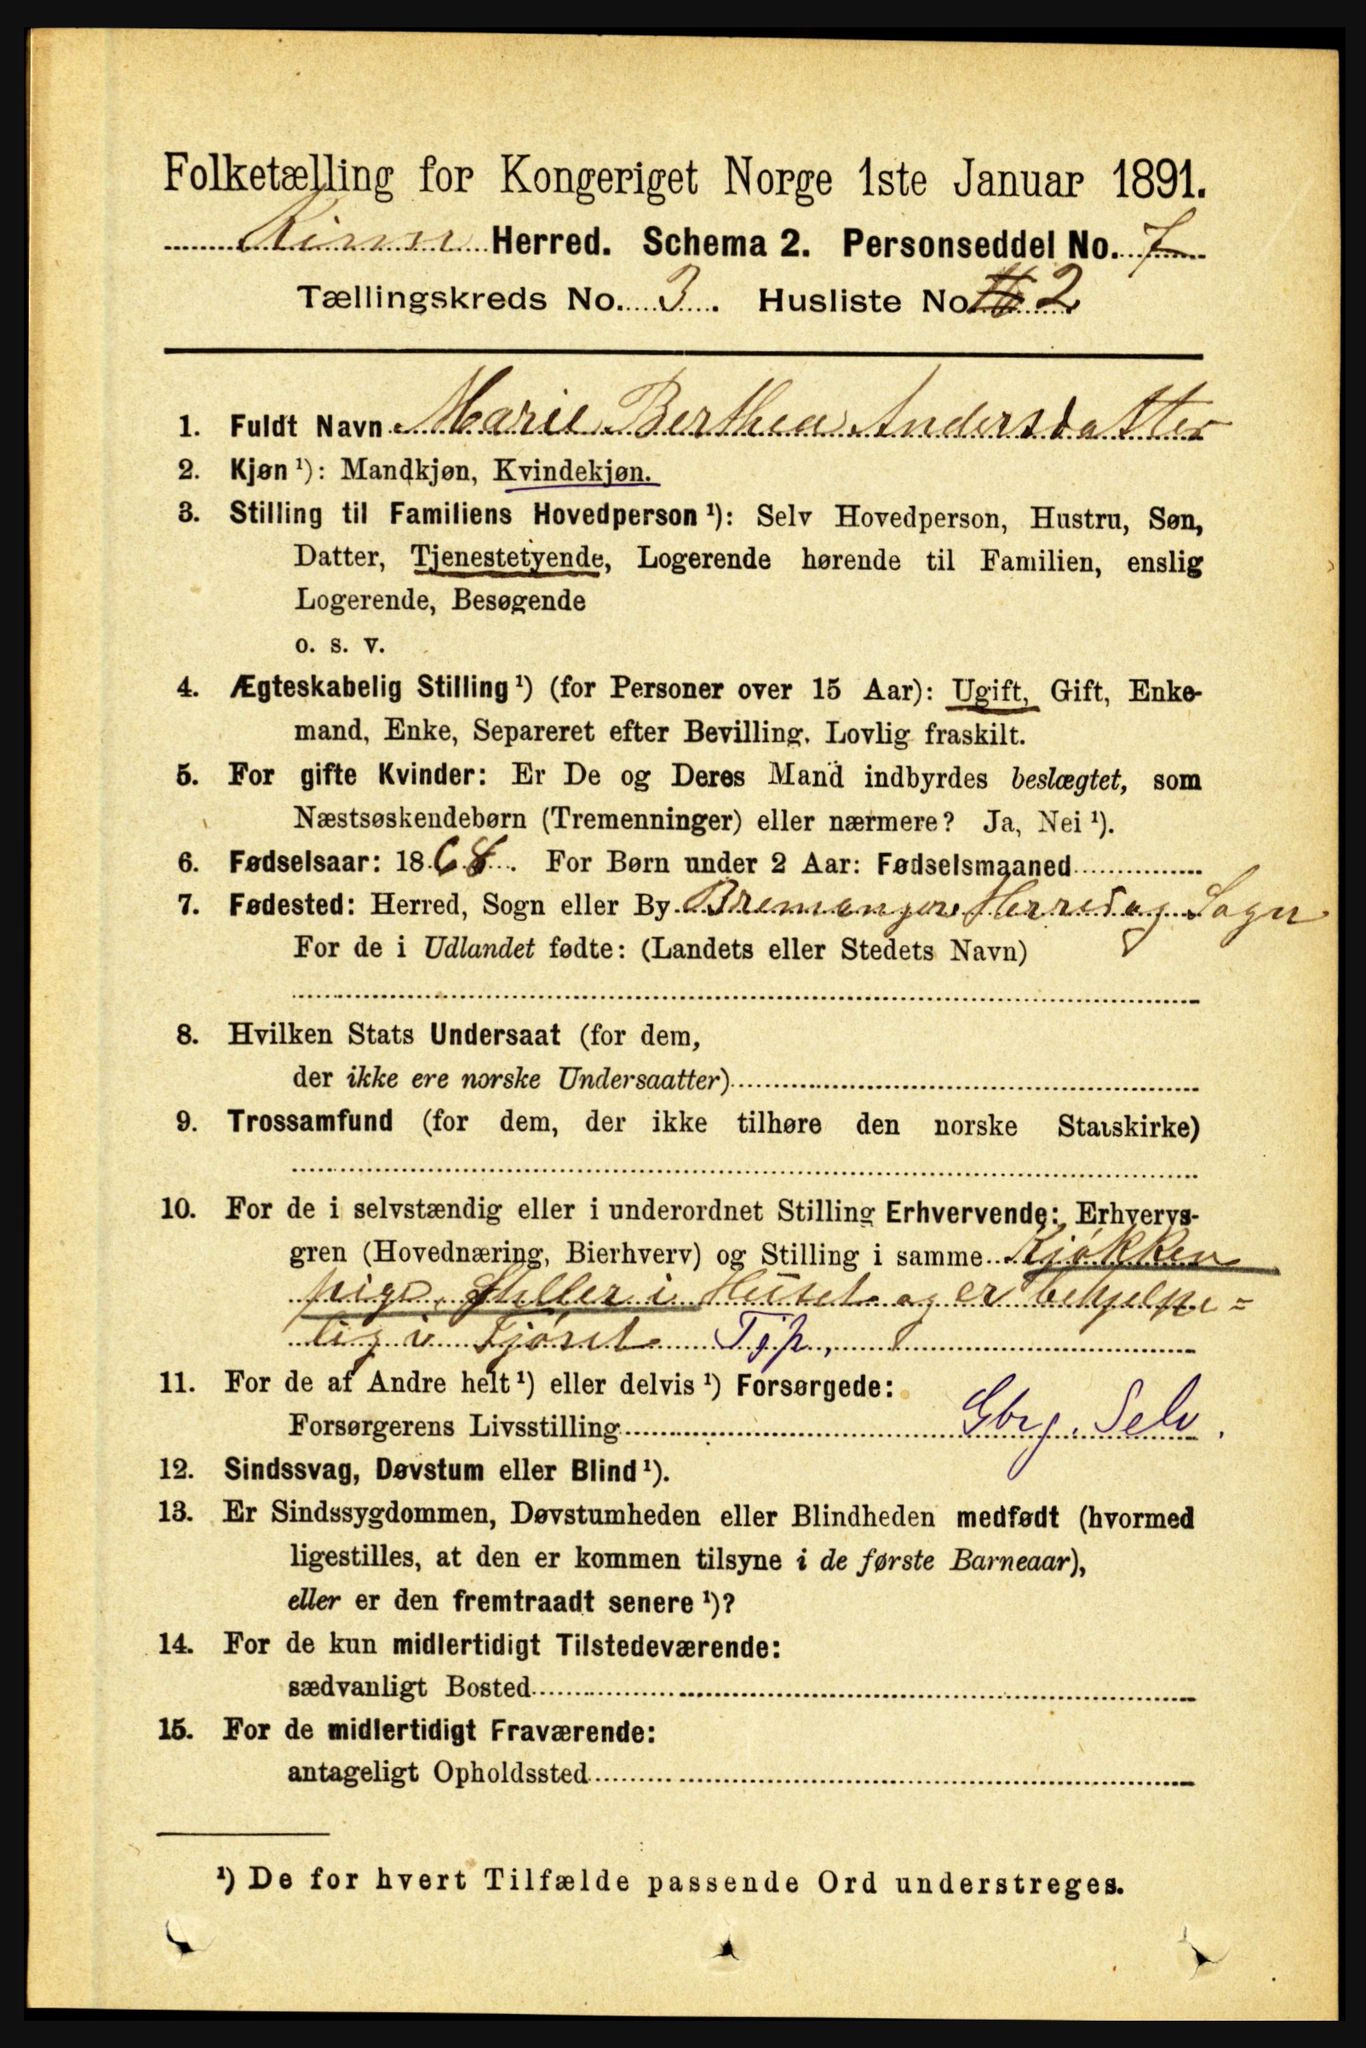 Folketælling for Kongeriget Norge 1ste Januar 1891.
Kinn Herred. Schema 2. Personseddel No. 7
Tællingskreds No. 3. Husliste No. 2
1. Fuldt Navn Marie Berthea Andersdatter
2. Kjøn ¹): Mandkjøn, Kvindekjøn.
3. Stilling til Familiens Hovedperson ¹): Selv Hovedperson, Hustru, Søn,
Datter, Tjenestetyende, Logerende hørende til Familien, enslig
Logerende, Besøgende
o. s. v.
4. Ægteskabelig Stilling ¹) (for Personer over 15 Aar): Ugift, Gift, Enke-
mand, Enke, Separeret efter Bevilling. Lovlig fraskilt.
5. For gifte Kvinder: Er De og Deres Mand indbyrdes beslægtet, som
Næstsøskendebørn (Tremenninger) eller nærmere? Ja, Nei ¹).
6. Fødselsaar: 1868. For Børn under 2 Aar: Fødselsmaaned
7. Fødested: Herred, Sogn eller By Bremanger Herred og Sogn
For de i Udlandet fødte: (Landets eller Stedets Navn)
8. Hvilken Stats Undersaat (for dem,
der ikke ere norske Undersaatter)
9. Trossamfund (for dem, der ikke tilhøre den norske Statskirke)
10. For de i selvstændig eller i underordnet Stilling Erhvervende: Erhvervs-
gren (Hovednæring, Bierhverv) og Stilling i samme Kjøkken
pige, steller i Huset og er behjelpe=
lig i Fjøset Tjp,
11. For de af Andre helt ¹) eller delvis ¹) Forsørgede:
Forsørgerens Livsstilling Gbrg. Selv.
12. Sindssvag, Døvstum eller Blind ¹).
13. Er Sindssygdommen, Døvstumheden eller Blindheden medfødt (hvormed
ligestilles, at den er kommen tilsyne i de første Barneaar),
eller er den fremtraadt senere ¹)?
14. For de kun midlertidigt Tilstedeværende:
sædvanligt Bosted
15. For de midlertidigt Fraværende:
antageligt Opholdssted
¹) De for hvert Tilfælde passende Ord understreges.